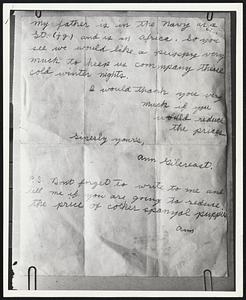 my father is in the Navy as a
St. (jg) and is in Africa. So you
see we would like a puippy very
much to keep us company these
cold winter nights.
I would thank you very
much if you
would reduce
the prices.
Sinerly yours,
Ann Gilcreast.
P.S. Dont forget to write to me and
tell me if you are going to reduse
the price of cother spanyal puppies
Ann